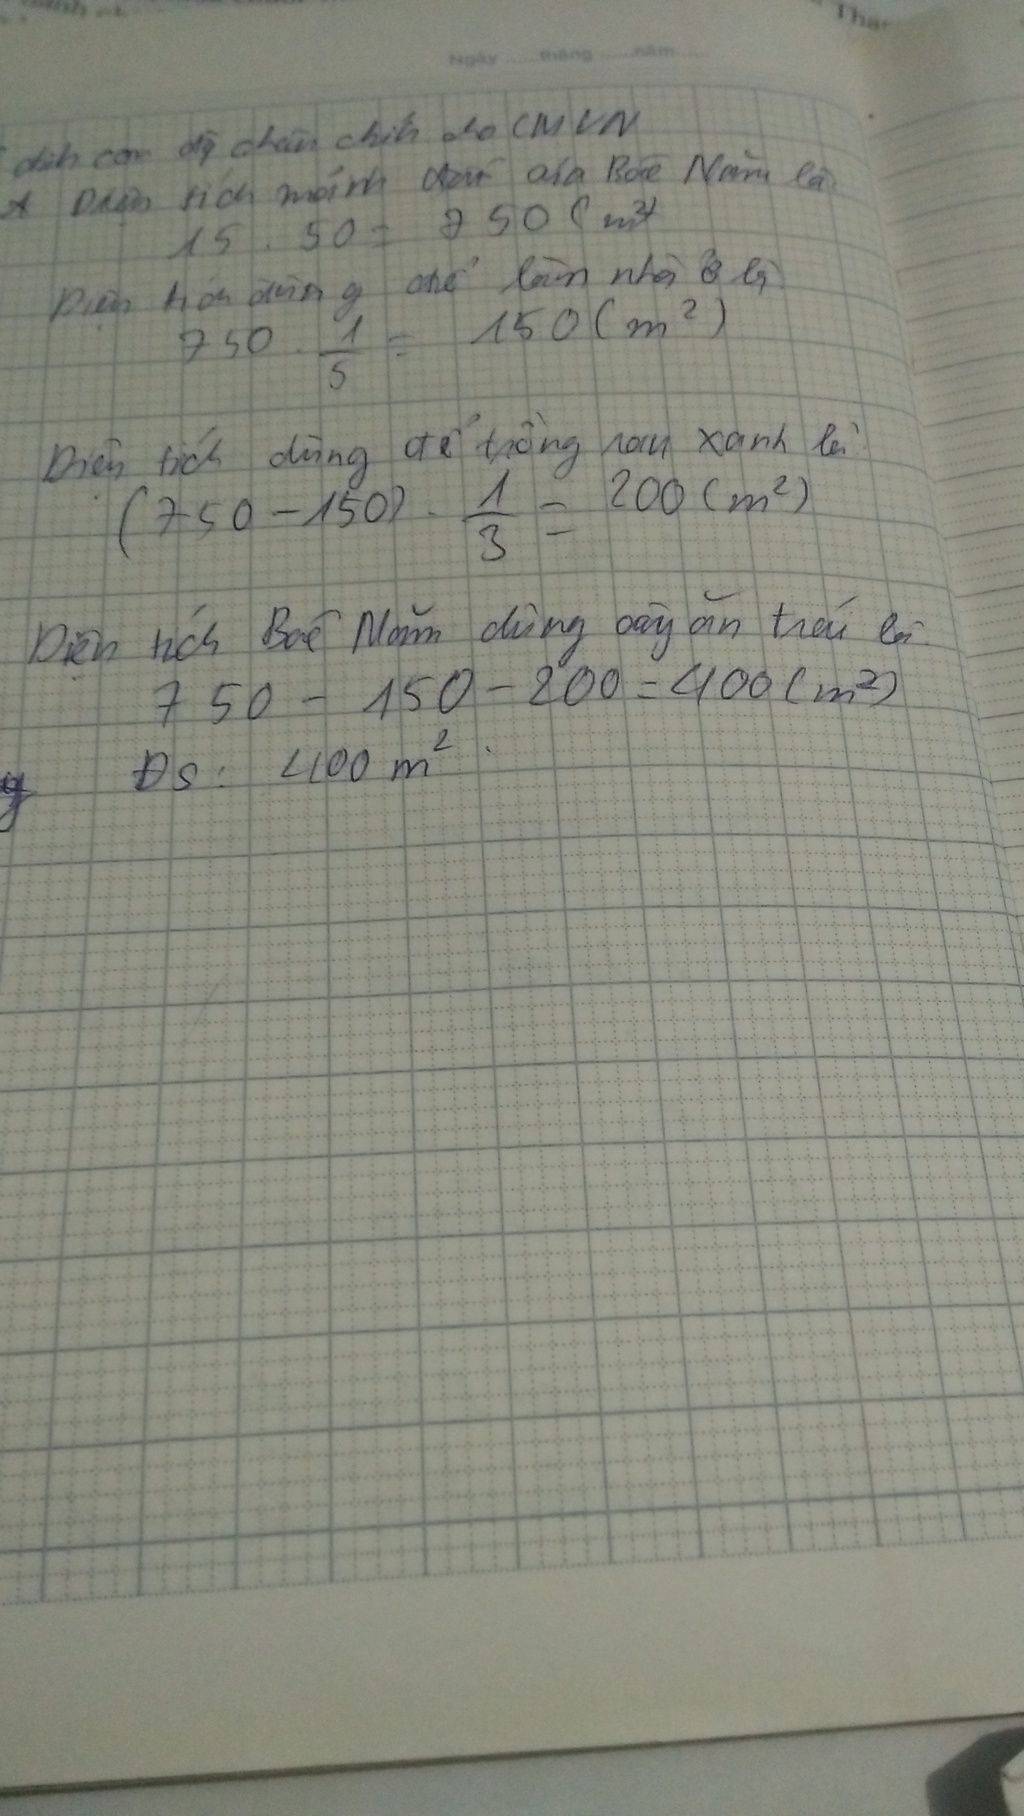 Ngày ......tháng ......năm......
định con đg chân chính cho CMVN
Diện tích mảnh đất của Bác Năm là
15 . 50 = 750 (m²)
Diện tích dùng để làm nhà ở là
750 . 1/5 = 150 (m²)
Diện tích dùng để trồng rau xanh là
(750 - 150) . 1/3 = 200 (m²)
Diện tích Bác Năm dùng cây ăn trái là
750 - 150 - 200 = 400 (m²)
ĐS: 400 m².